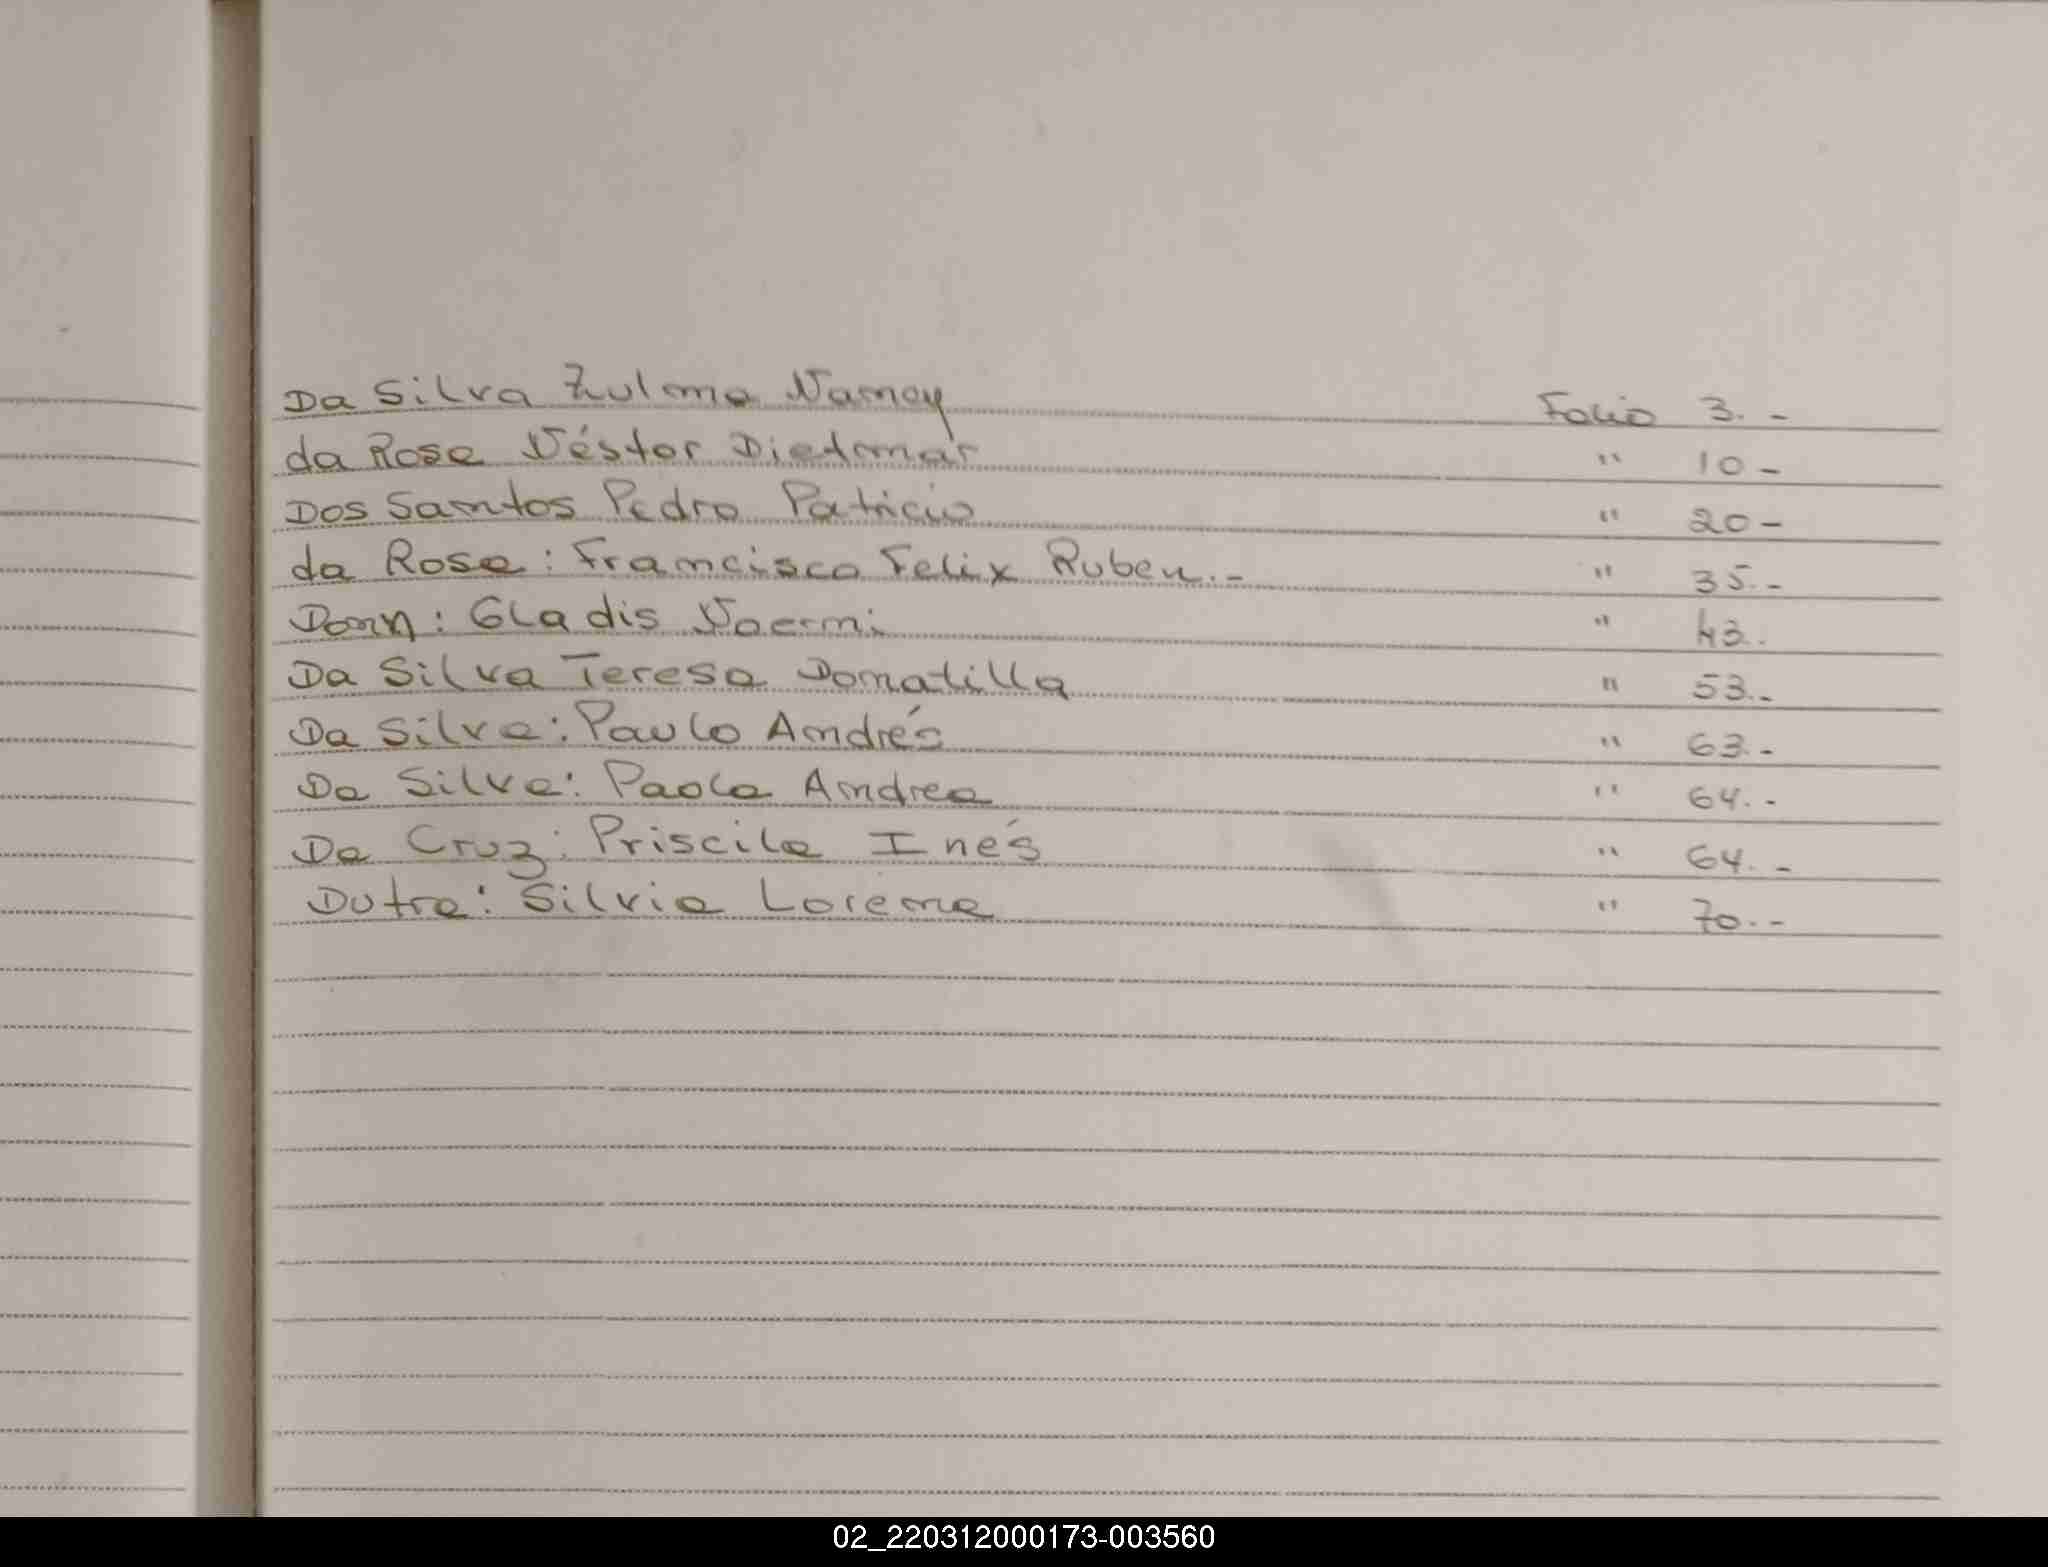 Da Silva Zulma Nancy Folio 3.-
da Rosa Néstor Dietmar " 10-
Dos Santos Pedro Patricio " 20-
da Rosa: Francisco Felix Ruben.- " 35.-
Dorn: Gladis Noemi " 43.
Da Silva Teresa Domatilla " 53.-
Da Silva: Paulo Andrés " 63.-
Da Silva: Paola Andrea " 64.-
Da Cruz: Priscila Inés " 64.-
Dutra: Silvia Lorena " 70.-
02_220312000173-003560